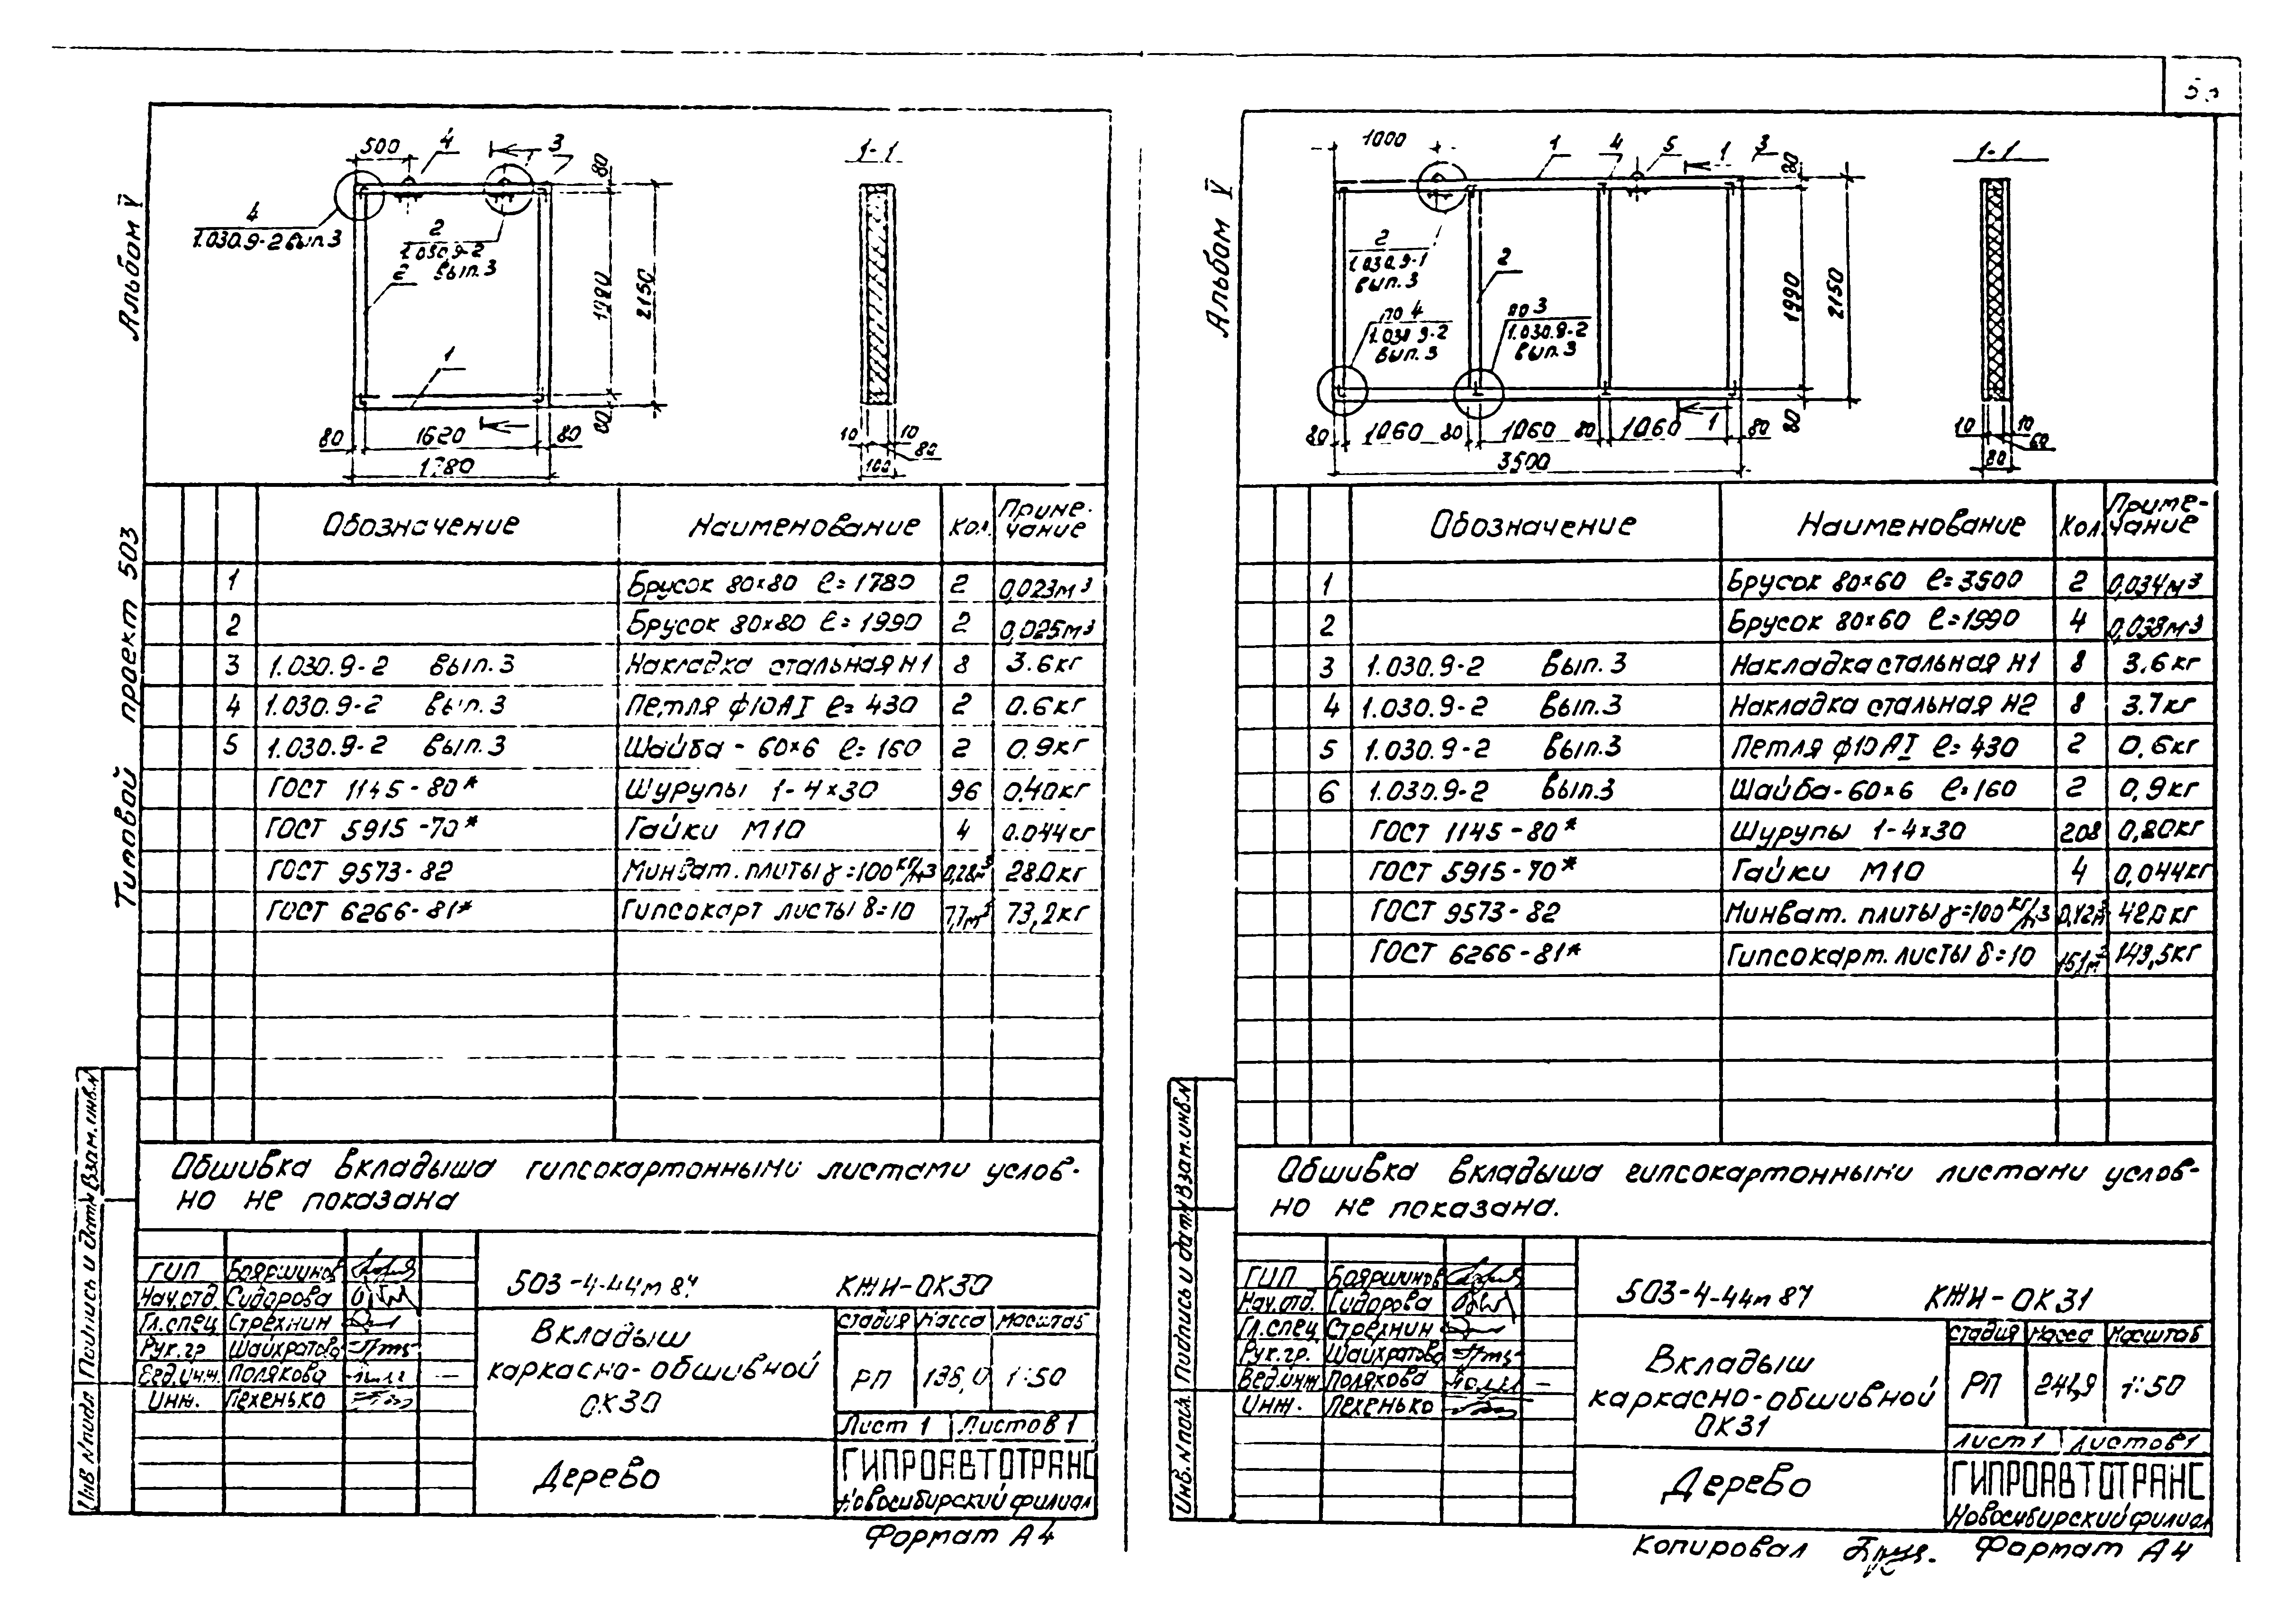 Альбом V
Типовой проект 503
500
4
3
80
4
1.030.9-2 вып.3
2
1.030.9-2
вып.3
2
1
1990
2150
80
80
1620
80
1780
1-1
10
10
80
100
Обозначение Наименование Кол. Приме-
чание
1 Брусок 80×80 ℓ=1780 2 0,023м³
2 Брусок 80×80 ℓ=1990 2 0,025м³
3 1.030.9-2 вып.3 Накладка стальная Н1 8 3.6кг
4 1.030.9-2 вып.3 Петля ф10АI ℓ=430 2 0.6кг
5 1.030.9-2 вып.3 Шайба-60×6 ℓ=160 2 0.9кг
ГОСТ 1145-80* Шурупы 1-4×30 96 0.40кг
ГОСТ 5915-70* Гайки М10 4 0.044кг
ГОСТ 9573-82 Минват. плиты γ=100кг/м3 0,28м³ 28.0кг
ГОСТ 6266-81* Гипсокарт листы δ=10 7,7м² 73,2кг
Обшивка вкладыша гипсокартонными листами услов-
но не показана
ГИП Бояршинов
Нач.отд. Сидорова
Гл.спец Стрехнин
Рук.гр Шайхратова
Вед.инж. Полякова
Инж. Пехенько
503-4-44м 87 КЖИ-ОК30
Вкладыш
каркасно-обшивной
ОК30
Стадия Масса Масштаб
РП 136,0 1:50
Лист 1 Листов 1
Дерево
ГИПРОАВТОТРАНС
Новосибирский филиал
Формат А4
Инв.№подл Подпись и дата Взам.инв.№
Альбом V
1000
1
4
5
1
3
80
2
1.030.9-1
вып.3
2
по 4
1.030 9-2
вып.3
по 3
1.030.9-2
вып.3
1990
2150
80
80 1060 80 1060 80 1060 1 80
3500
1-1
10
10
60
80
Обозначение Наименование Кол. Приме-
чание
1 Брусок 80×60 ℓ=3500 2 0,034м³
2 Брусок 80×60 ℓ=1990 4 0,038м³
3 1.030.9-2 вып.3 Накладка стальная Н1 8 3.6кг
4 1.030.9-2 вып.3 Накладка стальная Н2 8 3.7кг
5 1.030.9-2 вып.3 Петля ф10АI ℓ=430 2 0.6кг
6 1.030.9-2 вып.3 Шайба-60×6 ℓ=160 2 0,9кг
ГОСТ 1145-80* Шурупы 1-4×30 208 0,80кг
ГОСТ 5915-70* Гайки М10 4 0,044кг
ГОСТ 9573-82 Минват. плиты γ=100кг/м3 0,42м³ 42.0кг
ГОСТ 6266-81* Гипсокарт. листы δ=10 15,1м² 143,5кг
Обшивка вкладыша гипсокартонными листами услов-
но не показана.
ГИП Бояршинов
Нач.отд. Сидорова
Гл.спец Стрехнин
Рук.гр. Шайхратова
Вед.инж Полякова
Инж. Пехенько
503-4-44м 87 КЖИ-ОК31
Вкладыш
каркасно-обшивной
ОК31
Стадия Масса Масштаб
РП 241,9 1:50
Лист 1 Листов 1
Дерево
ГИПРОАВТОТРАНС
Новосибирский филиал
Копировал Формат А4
Инв.№подл. Подпись и дата Взам.инв.№